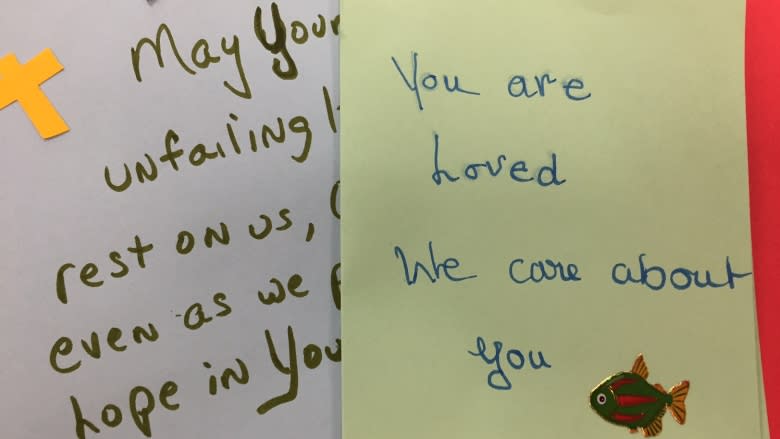 May Your
unfailing
rest on us,
even as we
hope in You
You are
Loved
We care about
you